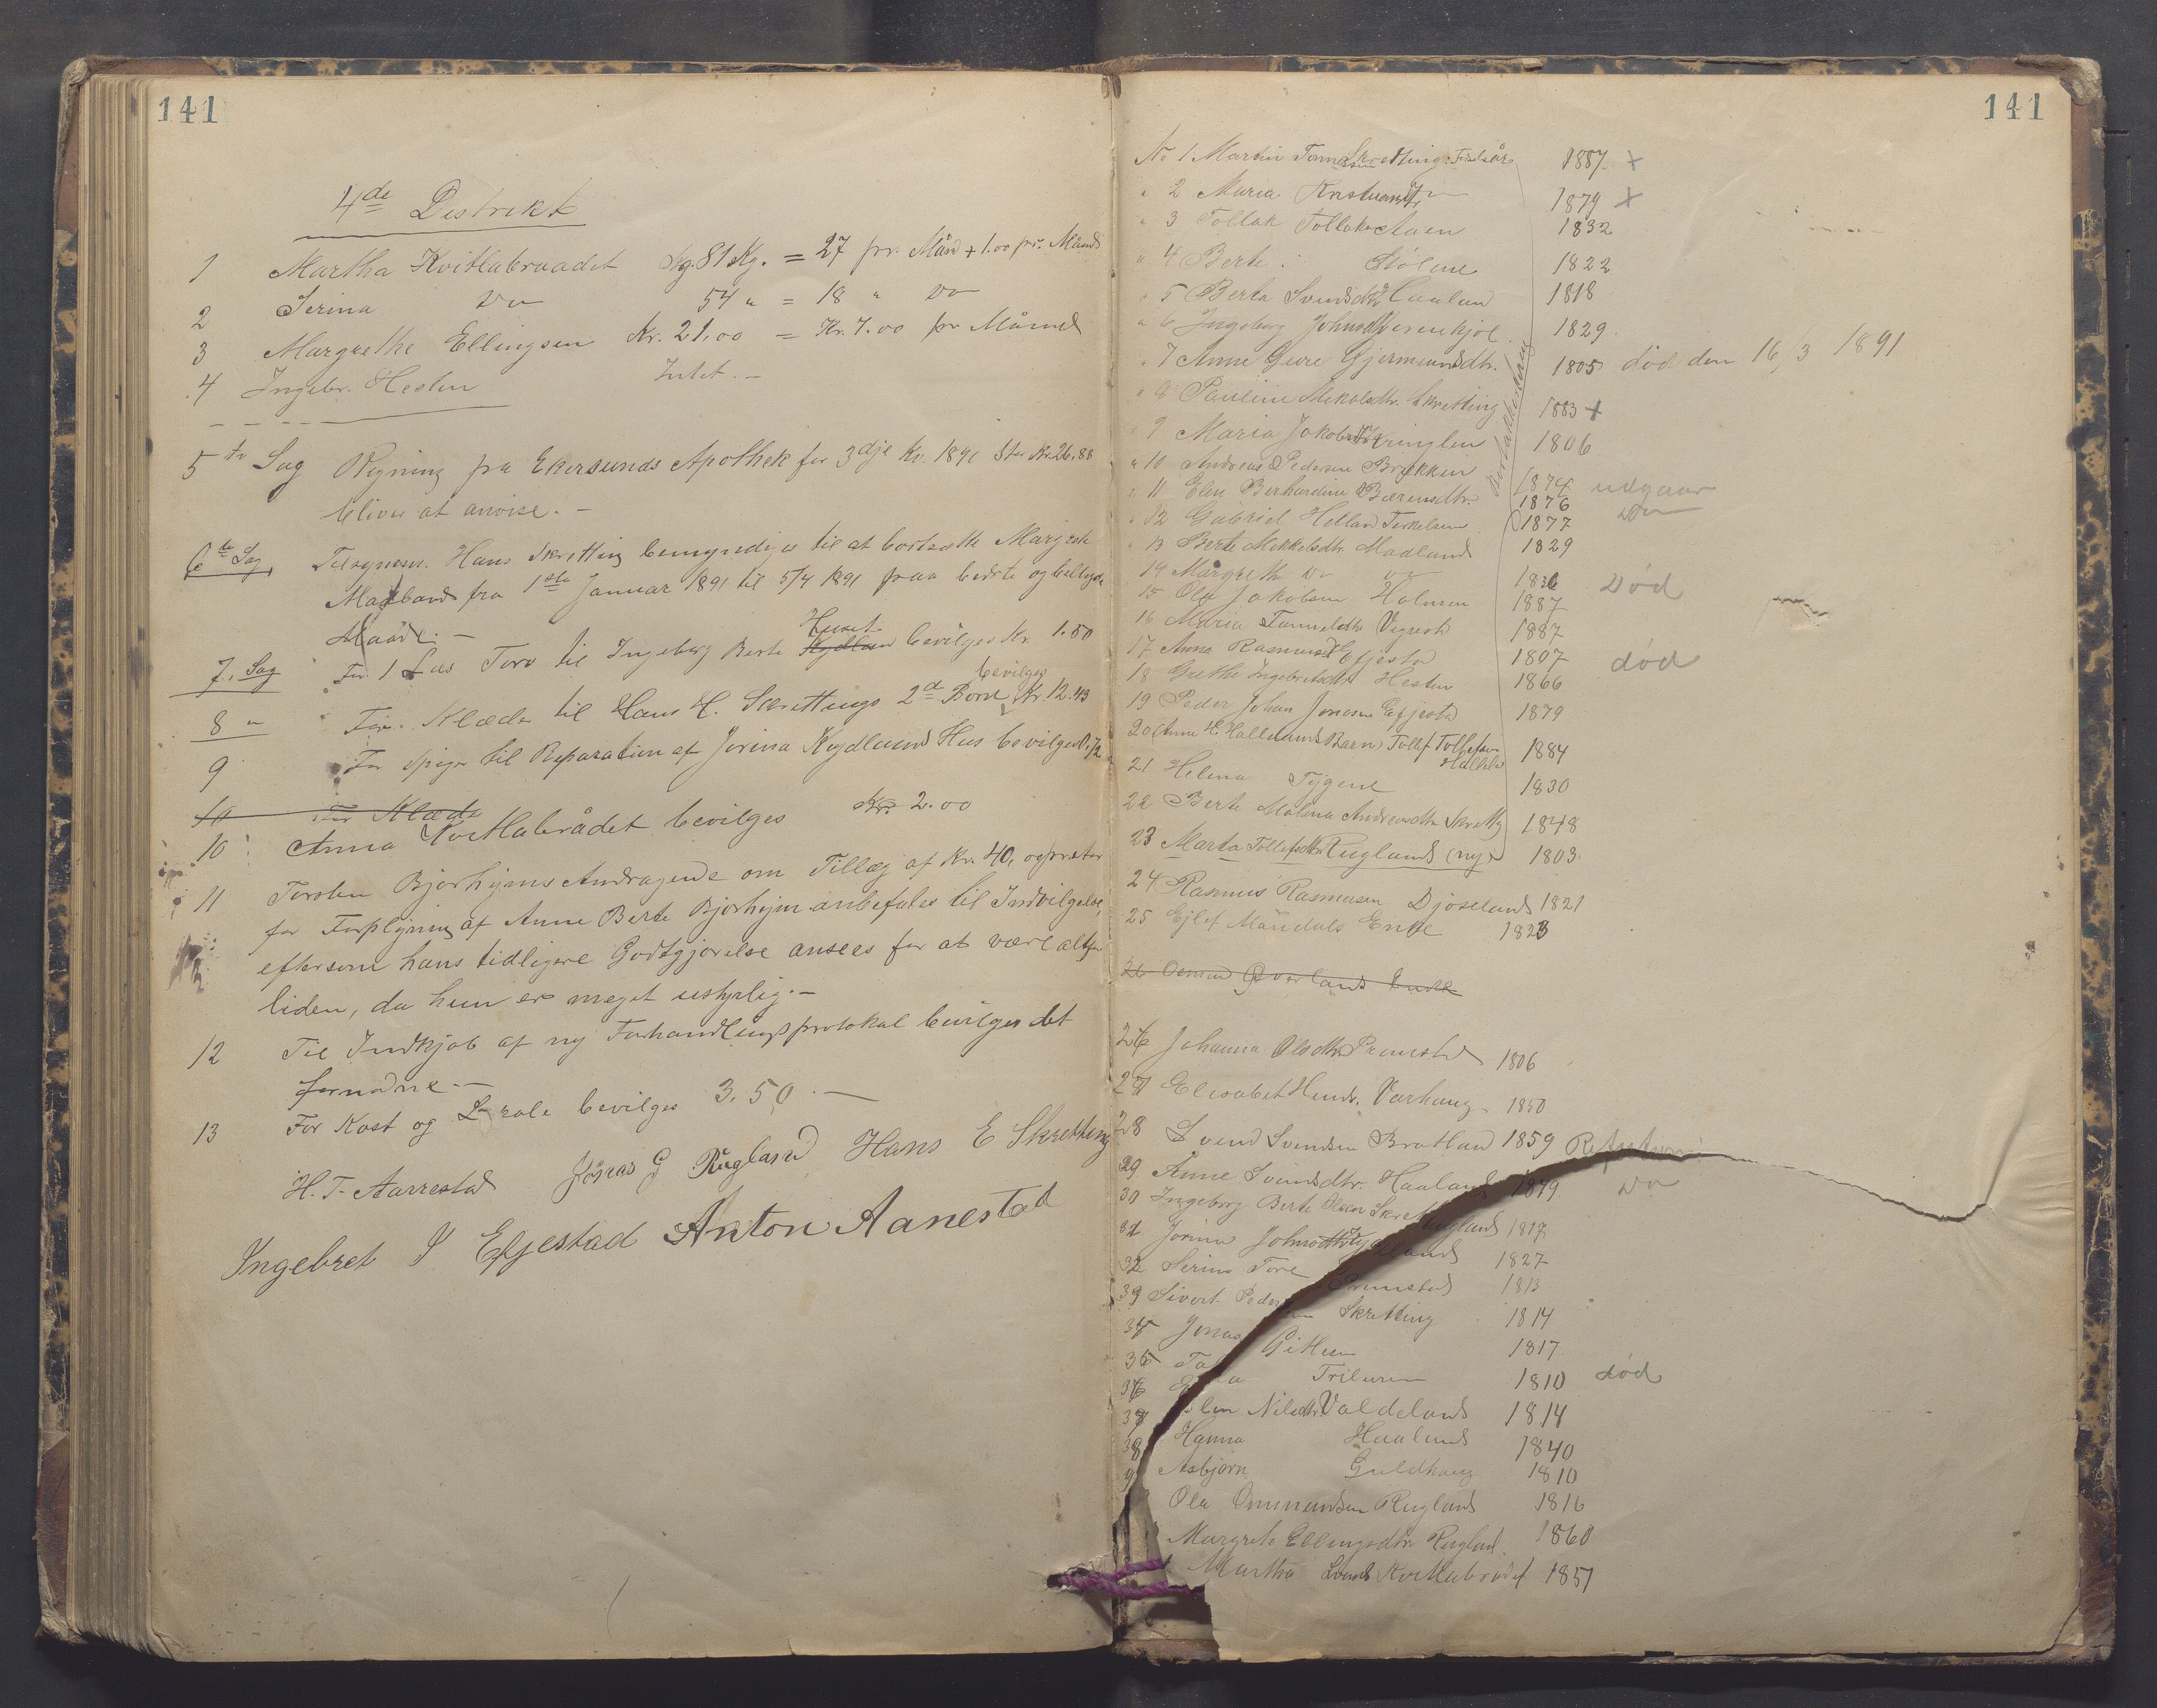 141
4de Distrikt
1 Martha Kvitlabraadet Kg. 81 Kg. = 27 pr. Månd + 1.00 pr. Månd
2 Serina Do 54 " = 18 " Do
3 Margrethe Ellingsen Kr. 21.00 = Kr. 7.00 pr Måned
4 Ingebr. Hesten Intet. -
5te Sag Regning fra Ekersunds Apothek for 3dje Kv. 1890 stor Kr. 26.88
bliver at anvise. -
6te Sag Tilsynsm. Hans Skretting bemyndiges til at bortsætte Margrete
Madland fra 1ste Januar 1891 til 5/4 1891 paa bedste og billigste
Maade. -
7. Sag For 1 Læs Torv til Ingeborg Berte Huset bevilges Kr. 1.50
8 " For Klæder til Hans H. Skrettings 2de Børn bevilges Kr. 12.43
9 For Spiger til Reparation af Jorina Kydlands Hus bevilges
10 For Klæder
10 Anna Kvitlabrådet bevilges Kr. 2.00
11 Torsten Bjorhjms Andragende om Tillæg af Kr. 40, og
for Forplejning af Anne Berte Bjorhjm anbefales til Indvilgelse,
eftersom hans tidligere Godtgjørelse ansees for at være altfor
liden, da hun er meget ustyrlig. -
12 Til Indkjøb af ny Forhandlingsprotokol bevilges det
fornødne. -
13 For Kost og Lokale bevilges 3.50. -
H. T. Aarrestad Jonas G Rugland Hans E Skretting
Ingebret I Efjestad Anton Aanestad
141
No 1 Martin Skretting 1887 +
" 2 Maria 1879 +
" 3 Tollak Tollaks Auen 1832
" 4 Berte Stølene 1822
" 5 Berta Svendsdtr Haaland 1818
" 6 Ingeborg Johnsdtr 1829
" 7 Anne Gure Gjermundsdtr. 1805 død den 16, 3 1891
" 8 Pauline Mikalsdtr. Skretting 1883 +
" 9 Maria Jakobsdtr 1806
" 10 Andreas Pedersen Brekken 1874 udgaar
" 11 Elen Berhardine Bærensdtr. 1876 Do
" 12 Gabriel Helland Terkelsen 1877
" 13 Berte Mikkelsdtr. Madland 1829
14 Margrethe Do Do 1836 Død
15 Ola Jakobsen Holmen 1887
16 Maria Vigrestad 1887
17 Anna Rasmusd Efjestad 1807 død
18 Grethe Ingebretsdtr Hesten 1866
19 Peder Johan Jonasen Efjestad 1879
20 (Anne H Hallelands Barn) Tollef Tollefsen Halleland 1884
21 Helena Tygene 1830
22 Berte Malena Andreasdtr Skretting 1848
23 Marta Tollefsdtr Rugland (ny) 1803
24 Rasmus Rasmusen Djøseland 1821
25 Ejlef Maudals Enke 1823
26 Osmund Øverland Enke
26 Johanna Olsdtr 1806
27 Elisabet Hend. Varhaug 1850
28 Svend Svendsen Bratland 1859
29 Anne Svendsdtr. Haaland 1849 Do
30 Ingeborg Berte 1817
31 Jorina Johnsdtr Kydland 1827
32 Serina Tore 1813
33 Sivert Pedersen Skretting 1814
34 Jonas 1817
35 1810 død
Elen Nilsdtr Valdeland 1814
Hanna Haaland 1840
Asbjørn Guldhaug 1810
Ola Ommundsen Rugland 1816
Margrete Ellingsdtr Rugland 1860
Martha Kvitlabrådet 1851